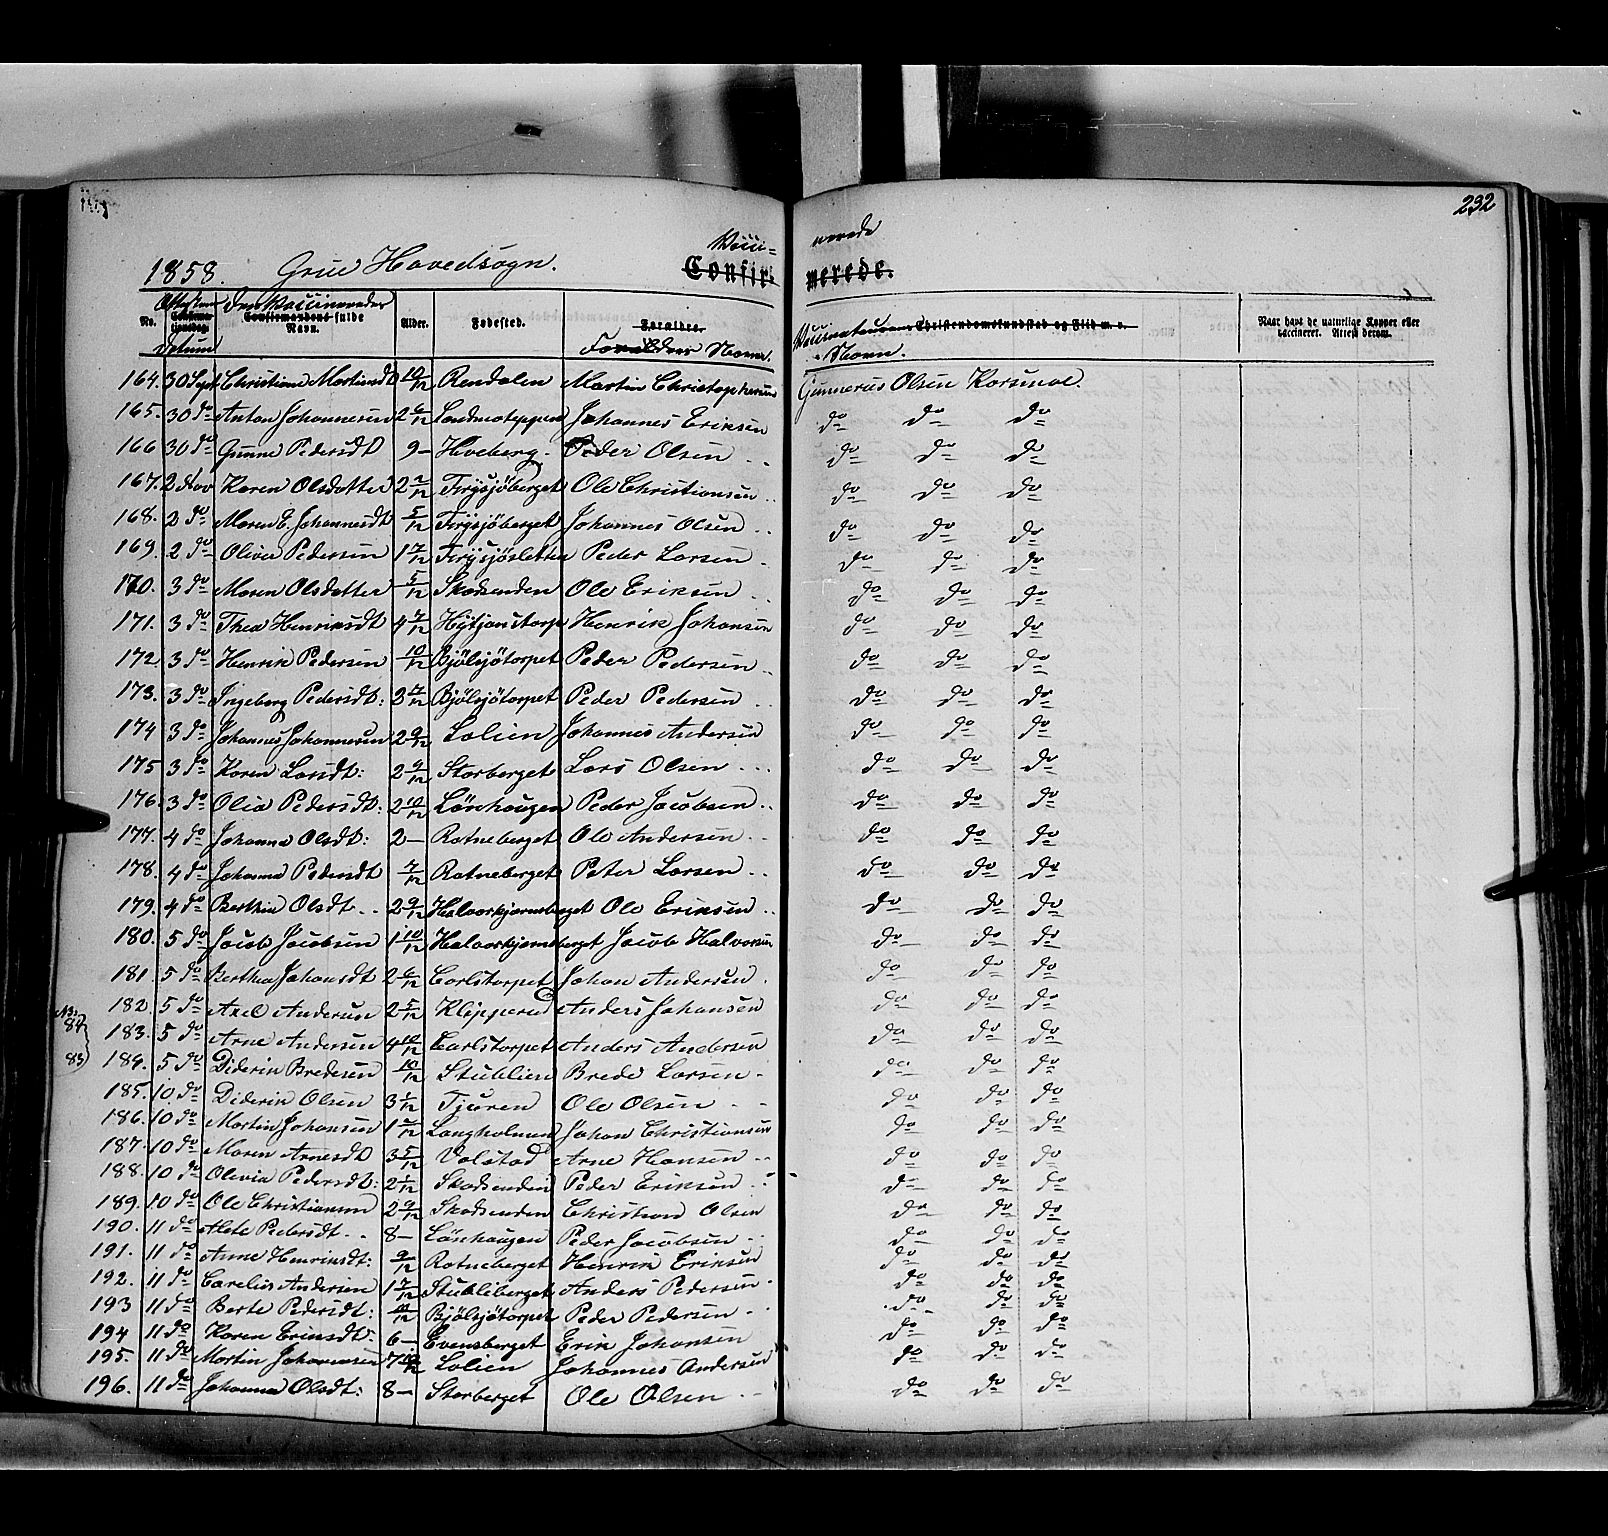 232
Vacci= nerede
1858. Grue Hovedsogn. Confir= merede.
No. Attestens Datum Den Vaccineredes fulde Navn. Alder. Fødested. Forældre. Forældres Navne. Vaccinateurens Navn. Christendomskundskab og Flid m. v. Naar havt de naturlige Kopper eller vaccineret. Attest derom.
164. 30 Sept. Christiane Martinsdt 10/12 Rendalen Martin Christophersen Gunnerus Olsen Korsmoe.
165. 30 do Anton Johannesen 2 6/12 Johannes Eriksen do do do
166 30 do Gunne Pedersdt 9 – Hveberg. Peder Olsen do do do
167. 2 Nov Karen Olsdatter 2 2/12 Frysjöberget Ole Christiansen do do do
168. 2 do Maren E. Johannesdt 5/12 Frysjöberget Johannes Olsen do do do
169. 2 do Olivia Pedersen 1 7/12 Frysjösletten Peder Larsen do do do
170. 3 do Maren Olsdatter 5/12 Skadsenden Ole Eriksen do do do
171. 3 do Thea Henriksdt 4 7/12 Hytjanstorp Henrik Johansen do do do
172. 3 do Henrik Pedersen 10/12 Bjölsjötorpet Peder Pedersen do do do
173. 3 do Ingeborg Pedersdt: 2 7/12 Bjölsjötorpet Peder Pedersen do do do
174 3 do Johannes Johannesen 2 9/12 Lolien Johannes Andersen do do do
175 3 do Karen Larsdt: 2 9/12 Storberget Lars Olsen do do do
176. 3 do Olia Pedersdt: 2 10/12 Lönhaugen Peder Jacobsen do do do
177. 4 do Johanna Olsdt: 2 – Rotneberget Ole Andersen do do do
178. 4 do Johanna Pedersdt 7/12 Rotneberget Peter Larsen do do do
179. 4 do Berthea Olsdt 2 9/12 Halvorkjernsberget Ole Eriksen do do do
180. 5 do Jacob Jacobsen 1 10/12 Halvorkjernsberget Jacob Halvorsen do do do
181. 5 do Berthea Johansdt 2 6/12 Carlstorpet Johan Andersen do do do
No. 84 182. 5 do Axel Andersen 2 5/12 Klipperud Anders Johansen do do do
183. 5 do Arne Andersen 4 10/12 Carlstorpet Anders Andersen do do do
83 184. 5 do Diderik Bredesen 10/12 Stublien Brede Larsen do do do
185. 10. do Diderik Olsen 3 1/12 Tjuren Ole Olsen do do do
186. 10 do Martin Johansen 1 5/12 Langholmen Johan Christiansen do do do
187. 10 do Maren Arnesdt 3 5/12 Volstad Arne Hansen do do do
188. 10 do Olivia Pedersdt: 2 1/12 Skadsenden Peder Eriksen do do do
189. 10 do Ole Christiansen 2 9/12 Skadsenden Christian Olsen do do do
190. 11 do Alete Pedersdt 8 – Lönhaugen Peder Jacobsen do do do
191. 11 do Anne Henriksdt: 9/12 Rotneberget Henrik Eriksen do do do
192. 11 do Carelius Andersen 1 7/12 Stubliberget Anders Pedersen do do do
193 11 do Berte Pedersdt: Bjölsjötorpet Peder Pedersen do do do
194 11 do Karen Eriksdt: 6 – Evensberget Erik Johansen do do do
195. 11 do Martin Johannesen 7 10/12 Lolien Johannes Andersen do do do
196. 11 do Johanna Olsdt: 8 – Storberget Ole Olsen do do do